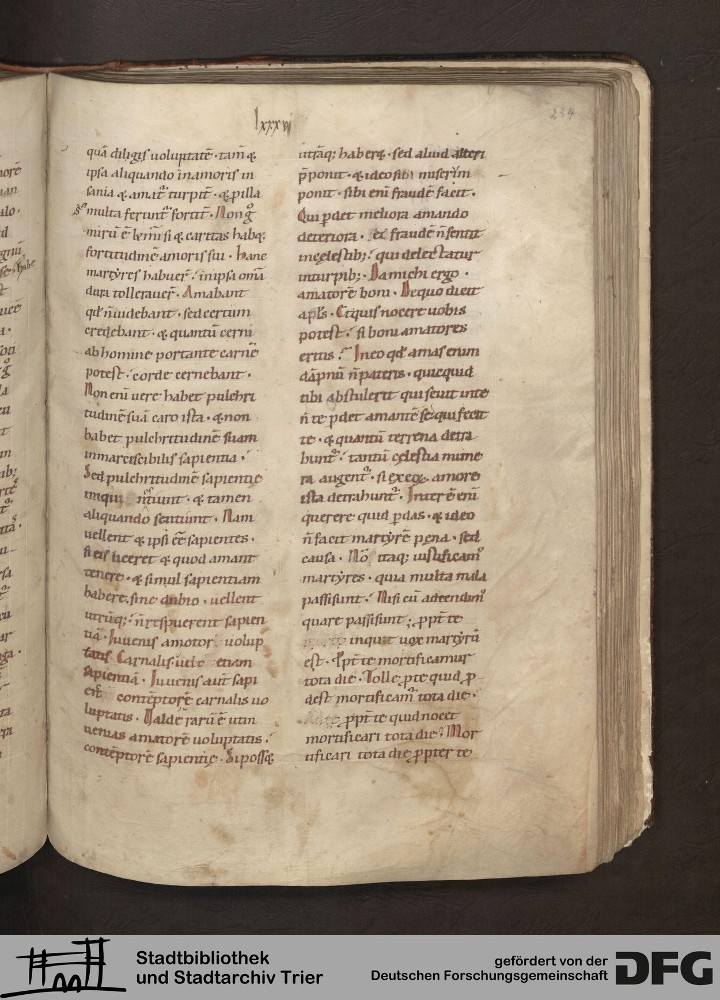 lxxxvi
234
quā diligis uoluptatē · tam̄ &
ipsa aliquando inamoris in
sania & amat᷑ turpit̄ · & p illa
multa ferunt᷑ fortit̄ · Non g̊
mirū ē
si & caritas habq;
fortitudinē amoris sui · hanc
martyres habuer̄ · inipsa om̄ia
dura tollerauer̄ · Amabant
qd̄ n̄ uidebant · sed certum
credebant · & quantū cerni
ab homine portante carnē
potest · corde cernebant ·
Non enī uere habet pulchri
tudinē suā caro ista · & non
habet pulchritudinē suam
inmarcescibilis sapientia ·
Sed pulchritudinē sapientie
iniqui n̄ sentiunt · & tamen
aliquando sentiunt · Nam
uellent & ipsi ēē sapientes ·
si eis liceret & quod amant
tenere · & simul sapientiam
habere · sine dubio · uellent
utrūq; · n̄ respuerent sapien
tiā · Iuuenis amator uolup
tatis Carnalis etiam
sapientiā · Iuuenis aut̄ sapi
contēptore carnalis uo
luptatis · Valde rarū ē ut in
uenias amatorē uoluptatis ·
contēptorē sapientie · Si posset
utrāq; haberet · sed aliud alteri
p̄ponit · & ideo sibi miseriam
ponit · sibi enī fraudē facit ·
Qui pdet meliora amando
deteriora · et fraudē n̄ sentit
incelestib; · qui delectatur
inturpib; · Da michi ergo ·
amatorē boni · De quo dicit
apl̄s · Et quis nocere uobis
potest · si boni amatores
eritis · In eo qd̄ amas enim
dāpnū n̄ patieris · quicquid
tibi abstulerit qui seuit inte
n̄ te pdet amantē se qui fecit
te · & quantū terrena detra
hunt᷑ · tantū celestia mune
ra augent᷑ · si ex eo amore
ista detrahunt᷑ · Interē enī
querere quid pdas · & ideo
n̄ facit martyrē pena · sed
causa · Nō itaq; iustificam᷑
martyres · quia multa mala
passi sunt · Nisi cū adtendim᷑
quare passi sunt · ppt̄ te
inquit uox martyrū
est · ppt̄ te mortificamur
tota die · Tolle ppter te quid p
dest mortificam᷑ tota die ·
ppt̄ te quid nocet
mortificari tota die · Mor
tificari tota die ppter te
Stadtbibliothek
und Stadtarchiv Trier
gefördert von der
Deutschen Forschungsgemeinschaft
DFG